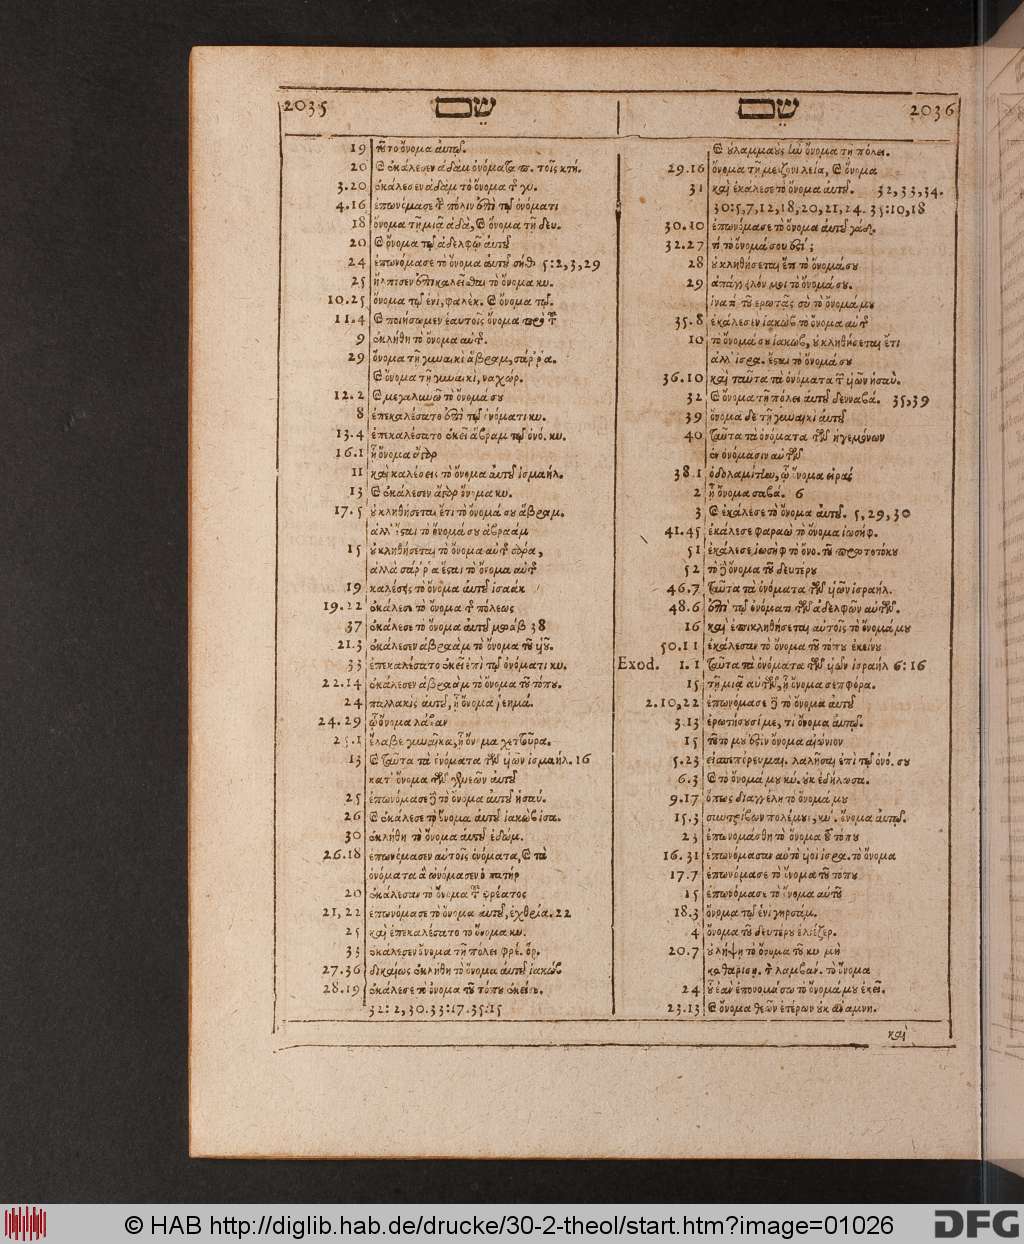 2035 שֵׁם שֵׁם 2036
19 τοῦτο ὄνομα αὐτοῦ.
20 καὶ ἐκάλεσεν ἀδὰμ ὀνόματα π. τοῖς κτή.
3.20 ἐκάλεσεν ἀδὰμ τὸ ὄνομα τ γυ.
4.16 ἐπωνόμασε τ πόλιν ἐπὶ τῷ ὀνόματι
18 ὄνομα τῇ μιᾷ ἀδὰ, καὶ ὄνομα τῇ δευ.
20 καὶ ὄνομα τῷ ἀδελφῷ αὐτοῦ
24 ἐπωνόμασε τὸ ὄνομα αὐτοῦ σήθ 5:2,3,29
25 ἤλπισεν ἐπικαλεῖσθαι τὸ ὄνομα κυ.
10.25 ὄνομα τῷ ἑνὶ, φαλέκ. καὶ ὄνομα τῷ.
11.4 καὶ ποιήσωμεν ἑαυτοῖς ὄνομα πρὸ τ
9 ἐκλήθη τὸ ὄνομα αὐτ.
29 ὄνομα τῇ γυναικὶ ἄβραμ, σάρρα.
καὶ ὄνομα τῇ γυναικὶ, ναχώρ.
12.2 καὶ μεγαλυνῶ τὸ ὄνομά σου
8 ἐπεκαλέσατο ἐπὶ τῷ ὀνόματι κυ.
13.4 ἐπεκαλέσατο ἐκεῖ ἄβραμ τῷ ὀνό. κυ.
16.1 ᾗ ὄνομα ἄγαρ
11 καὶ καλέσεις τὸ ὄνομα αὐτοῦ ἰσμαήλ.
13 καὶ ἐκάλεσεν ἄγαρ ὄνομα κυ.
17.5 οὐ κληθήσεται ἔτι τὸ ὄνομά σου ἄβραμ.
ἀλλ' ἔσται τὸ ὄνομά σου ἀβραάμ
15 οὐ κληθήσεται τὸ ὄνομα αὐτ σάρα,
ἀλλὰ σάρρα ἔσται τὸ ὄνομα αὐτ
19 καλέσεις τὸ ὄνομα αὐτοῦ ἰσαάκ
19.22 ἐκάλεσε τὸ ὄνομα τ πόλεως
37 ἐκάλεσε τὸ ὄνομα αὐτοῦ μωὰβ 38
21.3 ἐκάλεσεν ἀβραὰμ τὸ ὄνομα τοῦ ὑοῦ.
33 ἐπεκαλέσατο ἐκεῖ ἐπὶ τῷ ὀνόματι κυ.
22.14 ἐκάλεσεν ἀβραὰμ τὸ ὄνομα τοῦ τόπου.
24 παλλακὶς αὐτοῦ, ᾗ ὄνομα ῥεημά.
24.29 ᾧ ὄνομα λάβαν
25.1 ἔλαβε γυναῖκα, ᾗ ὄνομα χεττοῦρα.
13 καὶ ταῦτα τὰ ὀνόματα τῶν ὑῶν ἰσμαήλ. 16
κατ' ὄνομα τῶν γενεῶν αὐτοῦ
25 ἐπωνόμασε δὲ τὸ ὄνομα αὐτοῦ ἠσαύ.
26 καὶ ἐκάλεσε τὸ ὄνομα αὐτοῦ ἰακὼβ ἰσα.
30 ἐκλήθη τὸ ὄνομα αὐτοῦ ἐδώμ.
26.18 ἐπωνόμασεν αὐτοῖς ὀνόματα, καὶ τὰ
ὀνόματα ἃ ὠνόμασεν ὁ πατήρ
20 ἐκάλεσαν τὸ ὄνομα τ φρέατος
21,22 ἐπωνόμασε τὸ ὄνομα αὐτοῦ, ἐχθρία. 22
25 καὶ ἐπεκαλέσατο τὸ ὄνομα κυ.
33 ἐκάλεσεν ὄνομα τῇ πόλει φρέ. ὅρ.
27.36 δικαίως ἐκλήθη τὸ ὄνομα αὐτοῦ ἰακώβ
28.19 ἐκάλεσε τὸ ὄνομα τοῦ τόπου ἐκείνου.
32:2,30.33:17.35:15
καὶ οὐλαμμαοὺς ἦν ὄνομα τῇ πόλει.
29.16 ὄνομα τῇ μείζονι λεία, καὶ ὄνομα
31 καὶ ἐκάλεσε τὸ ὄνομα αὐτοῦ. 32,33,34.
30:5,7,12,18,20,21,24. 35:10,18
30.10 ἐπωνόμασε τὸ ὄνομα αὐτοῦ γάδ.
32.27 τί τὸ ὄνομά σου ἐστί;
28 οὐ κληθήσεται ἔτι τὸ ὄνομά σου
29 ἀπάγγειλόν μοι τὸ ὄνομά σου.
ἵνα τί τοῦτο ἐρωτᾷς σὺ τὸ ὄνομά μου
35.8 ἐκάλεσεν ἰακὼβ τὸ ὄνομα αὐτ
10 τὸ ὄνομά σου ἰακὼβ, οὐ κληθήσεται ἔτι
ἀλλ' ἰσρα. ἔσται τὸ ὄνομά σου
36.10 καὶ ταῦτα τὰ ὀνόματα τ ὑῶν ἠσαῦ.
32 καὶ ὄνομα τῇ πόλει αὐτοῦ δενναβά. 35,39
39 ὄνομα δὲ τῇ γυναικὶ αὐτοῦ
40 ταῦτα τὰ ὀνόματα τῶν ἡγεμόνων
ἐν ὀνόμασιν αὐτῶν
38.1 ὀδολαμίτην, ᾧ ὄνομα εἰράς
2 ᾗ ὄνομα σαβά. 6
3 καὶ ἐκάλεσε τὸ ὄνομα αὐτοῦ. 5,29,30
41.45 ἐκάλεσε φαραὼ τὸ ὄνομα ἰωσήφ.
51 ἐκάλεσε ἰωσὴφ τὸ ὄνο. τοῦ πρωτοτόκου
52 τὸ δὲ ὄνομα τοῦ δευτέρου
46.7 ταῦτα τὰ ὀνόματα τῶν ὑῶν ἰσραήλ.
48.6 ἐπὶ τῷ ὀνόματι τῶν ἀδελφῶν αὐτῶν.
16 καὶ ἐπικληθήσεται αὐτοῖς τὸ ὄνομά μου
50.11 ἐκάλεσαν τὸ ὄνομα τοῦ τόπου ἐκείνου
Exod. 1.1 ταῦτα τὰ ὀνόματα τῶν ὑῶν ἰσραήλ 6:16
15 τῇ μιᾷ αὐτῶν, ᾗ ὄνομα σεπφόρα.
2.10,22 ἐπωνόμασε δὲ τὸ ὄνομα αὐτοῦ
3.13 ἐρωτήσουσί με, τί ὄνομα αὐτῷ.
15 τοῦτό μου ἐστὶν ὄνομα αἰώνιον
5.23 εἰσπεπόρευμαι λαλῆσαι ἐπὶ τῷ ὀνό. σου
6.3 καὶ τὸ ὄνομά μου κύ. οὐκ ἐδήλωσα.
9.17 ὅπως διαγγέλῃ τὸ ὄνομά μου
15.3 συντρίβων πολέμους, κύ. ὄνομα αὐτῷ.
23 ἐπωνομάσθη τὸ ὄνομα τοῦ τόπου
16.31 ἐπωνόμασαν αὐτὸ ὑοὶ ἰσρα. τὸ ὄνομα
17.7 ἐπωνόμασε τὸ ὄνομα τοῦ τόπου
15 ἐπωνόμασε τὸ ὄνομα αὐτοῦ
18.3 ὄνομα τῷ ἑνὶ γηρσάμ.
4 ὄνομα τοῦ δευτέρου ἐλιέζερ.
20.7 οὐ λήψῃ τὸ ὄνομα τοῦ κυ μὴ
καθαρίσῃ. τ λαμβαν. τὸ ὄνομα
24 οὗ ἐὰν ἐπονομάσω τὸ ὄνομά μου ἐκεῖ.
23.13 καὶ ὄνομα θεῶν ἑτέρων οὐκ ἀναμνη.
καὶ
© HAB http://diglib.hab.de/drucke/30-2-theol/start.htm?image=01026
DFG